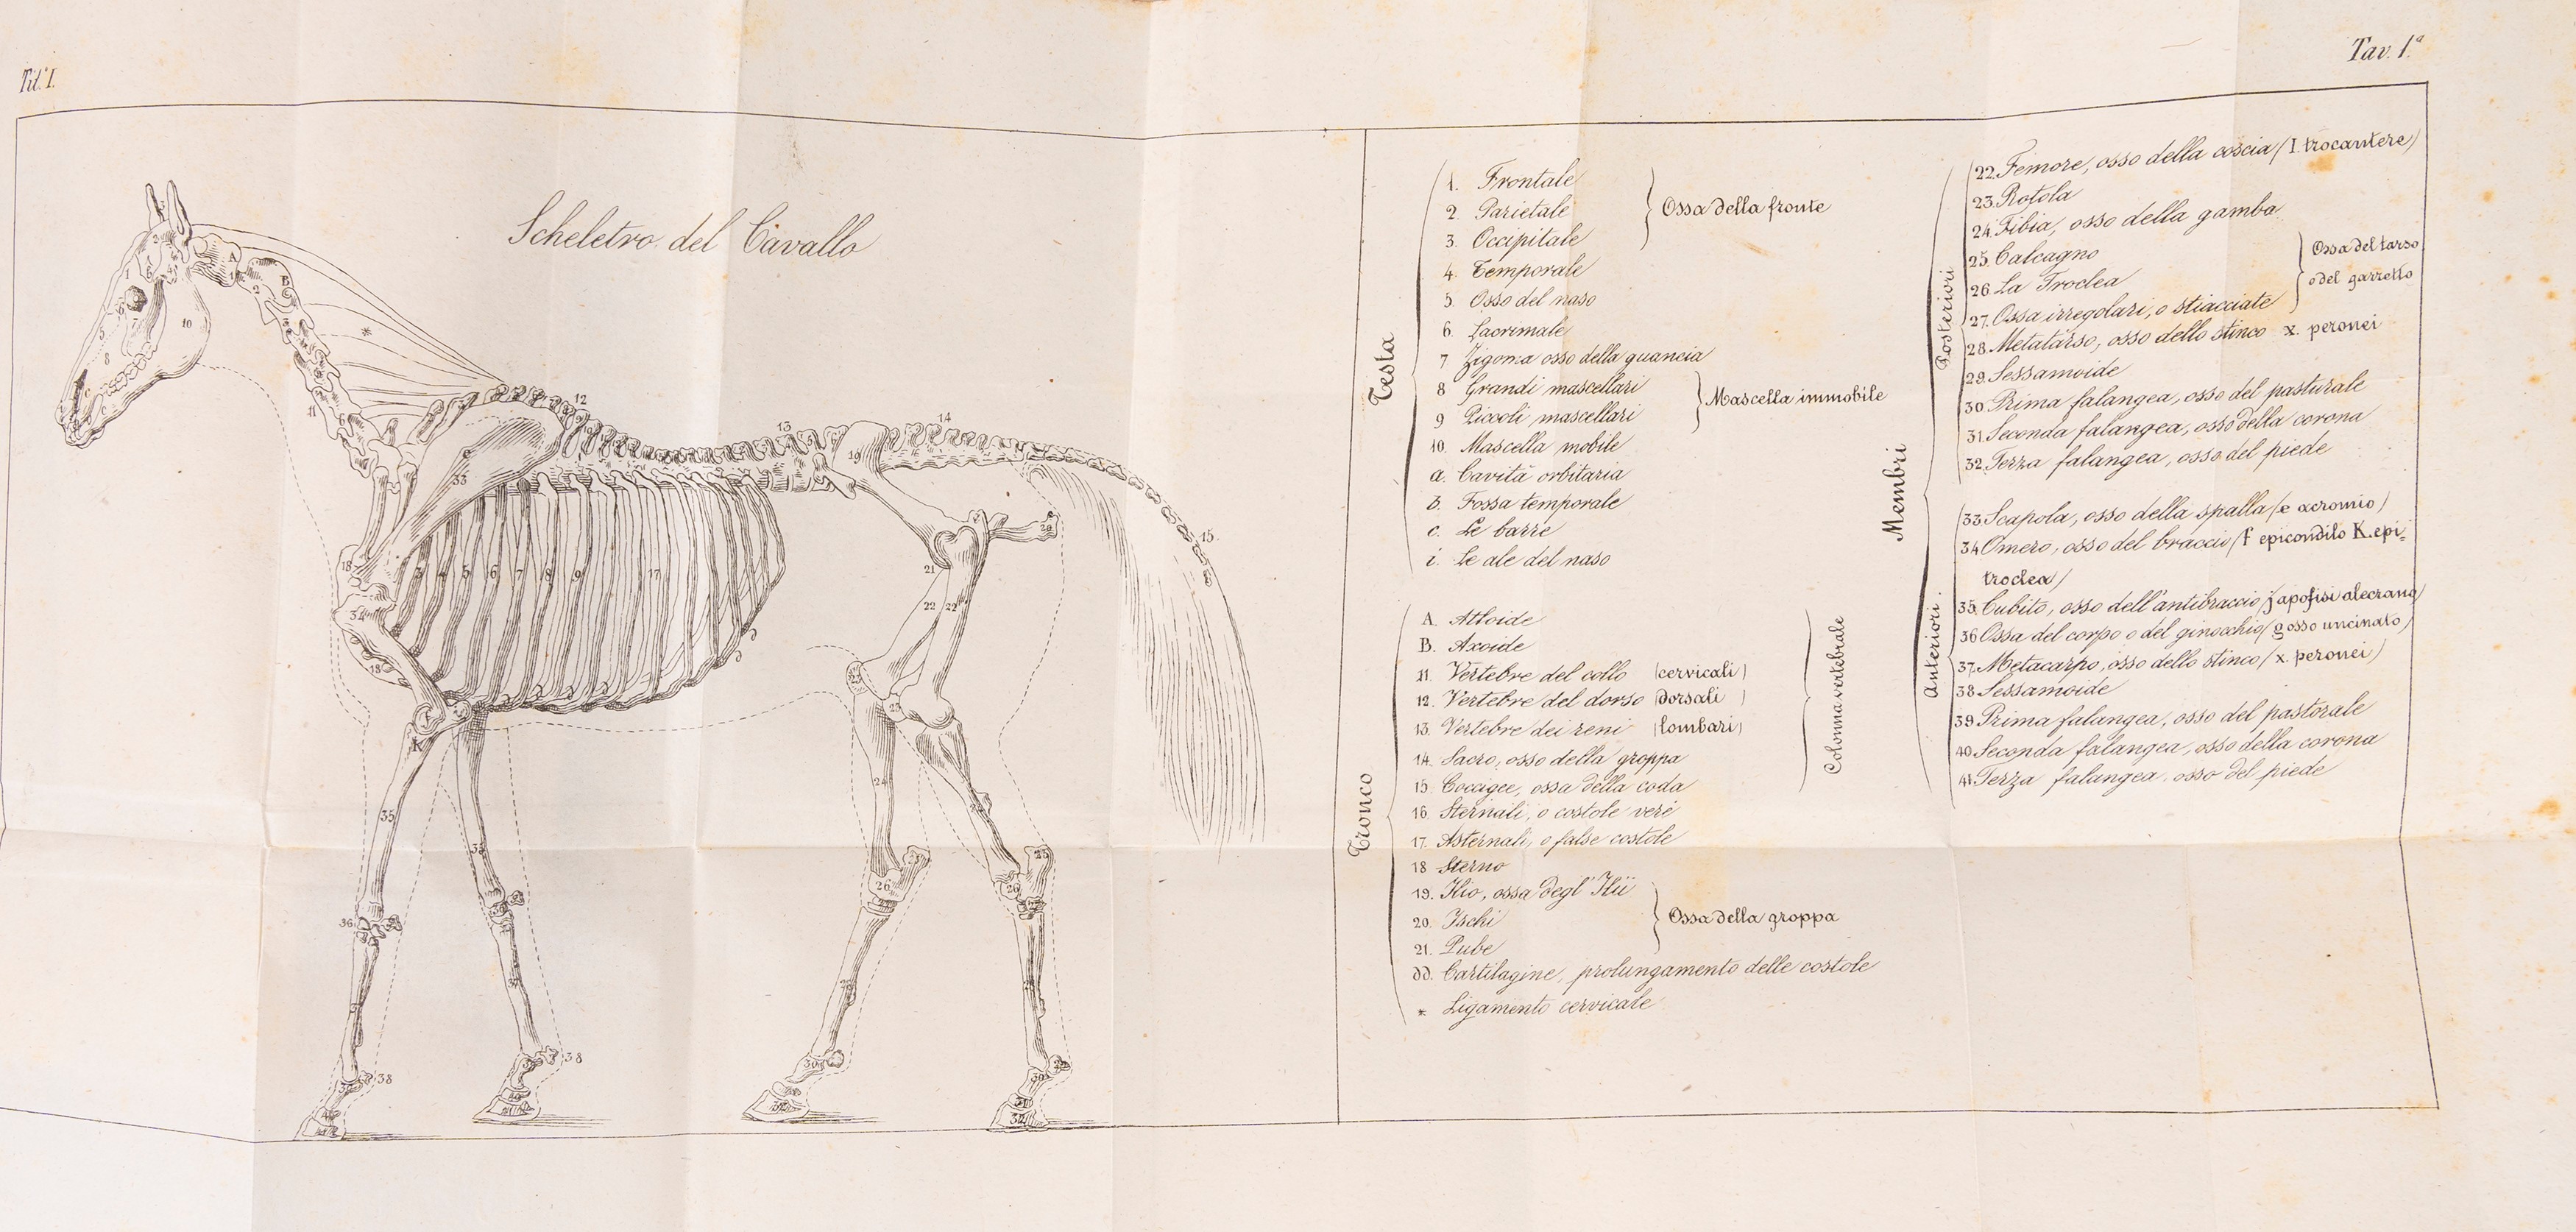 Tit.° I.
Tav. 1.ª
Scheletro del Cavallo
Testa
1. Frontale
2. Parietale
3. Occipitale
Ossa della fronte
4. Temporale
5. Osso del naso
6. Lacrimale
7 Zigoma osso della guancia
8 Grandi mascellari
9 Piccoli mascellari
Mascella immobile
10. Mascella mobile
a. Cavità orbitaria
b. Fossa temporale
c. Le barre
i. Le ale del naso
Tronco
A. Atloide
B. Axoide
11. Vertebre del collo (cervicali)
12. Vertebre del dorso (dorsali)
13. Vertebre dei reni (lombari)
14. Sacro, osso della groppa
15. Coccigee, ossa della coda
Colonna vertebrale
16. Sternali, o costole vere
17. Asternali, o false costole
18 Sterno
19. Ilio, ossa degl' Ilii
20. Ischi
21. Pube
Ossa della groppa
dd. Cartilagine, prolungamento delle costole
* Ligamento cervicale
Membri
Posteriori
22. Femore, osso della coscia (I. trocantere)
23. Rotola
24. Tibia, osso della gamba
25. Calcagno
26. La Troclea
27. Ossa irregolari, o stiacciate
Ossa del tarso
o del garretto
28. Metatarso, osso dello stinco x. peronei
29. Sessamoide
30. Prima falangea, osso del pasturale
31. Seconda falangea, osso della corona
32. Terza falangea, osso del piede
Anteriori.
33 Scapola, osso della spalla (e acromio)
34 Omero, osso del braccio (f epicondilo K. epi=
troclea)
35. Cubito, osso dell'antibraccio (j apofisi alecrano)
36 Ossa del corpo o del ginocchio (g osso uncinato)
37. Metacarpo, osso dello stinco (x. peronei)
38 Sessamoide
39 Prima falangea, osso del pastorale
40 Seconda falangea, osso della corona
41 Terza falangea, osso del piede